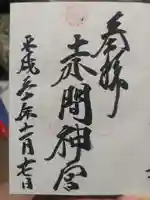 奉拝
赤間神宮
平成年十一月七日